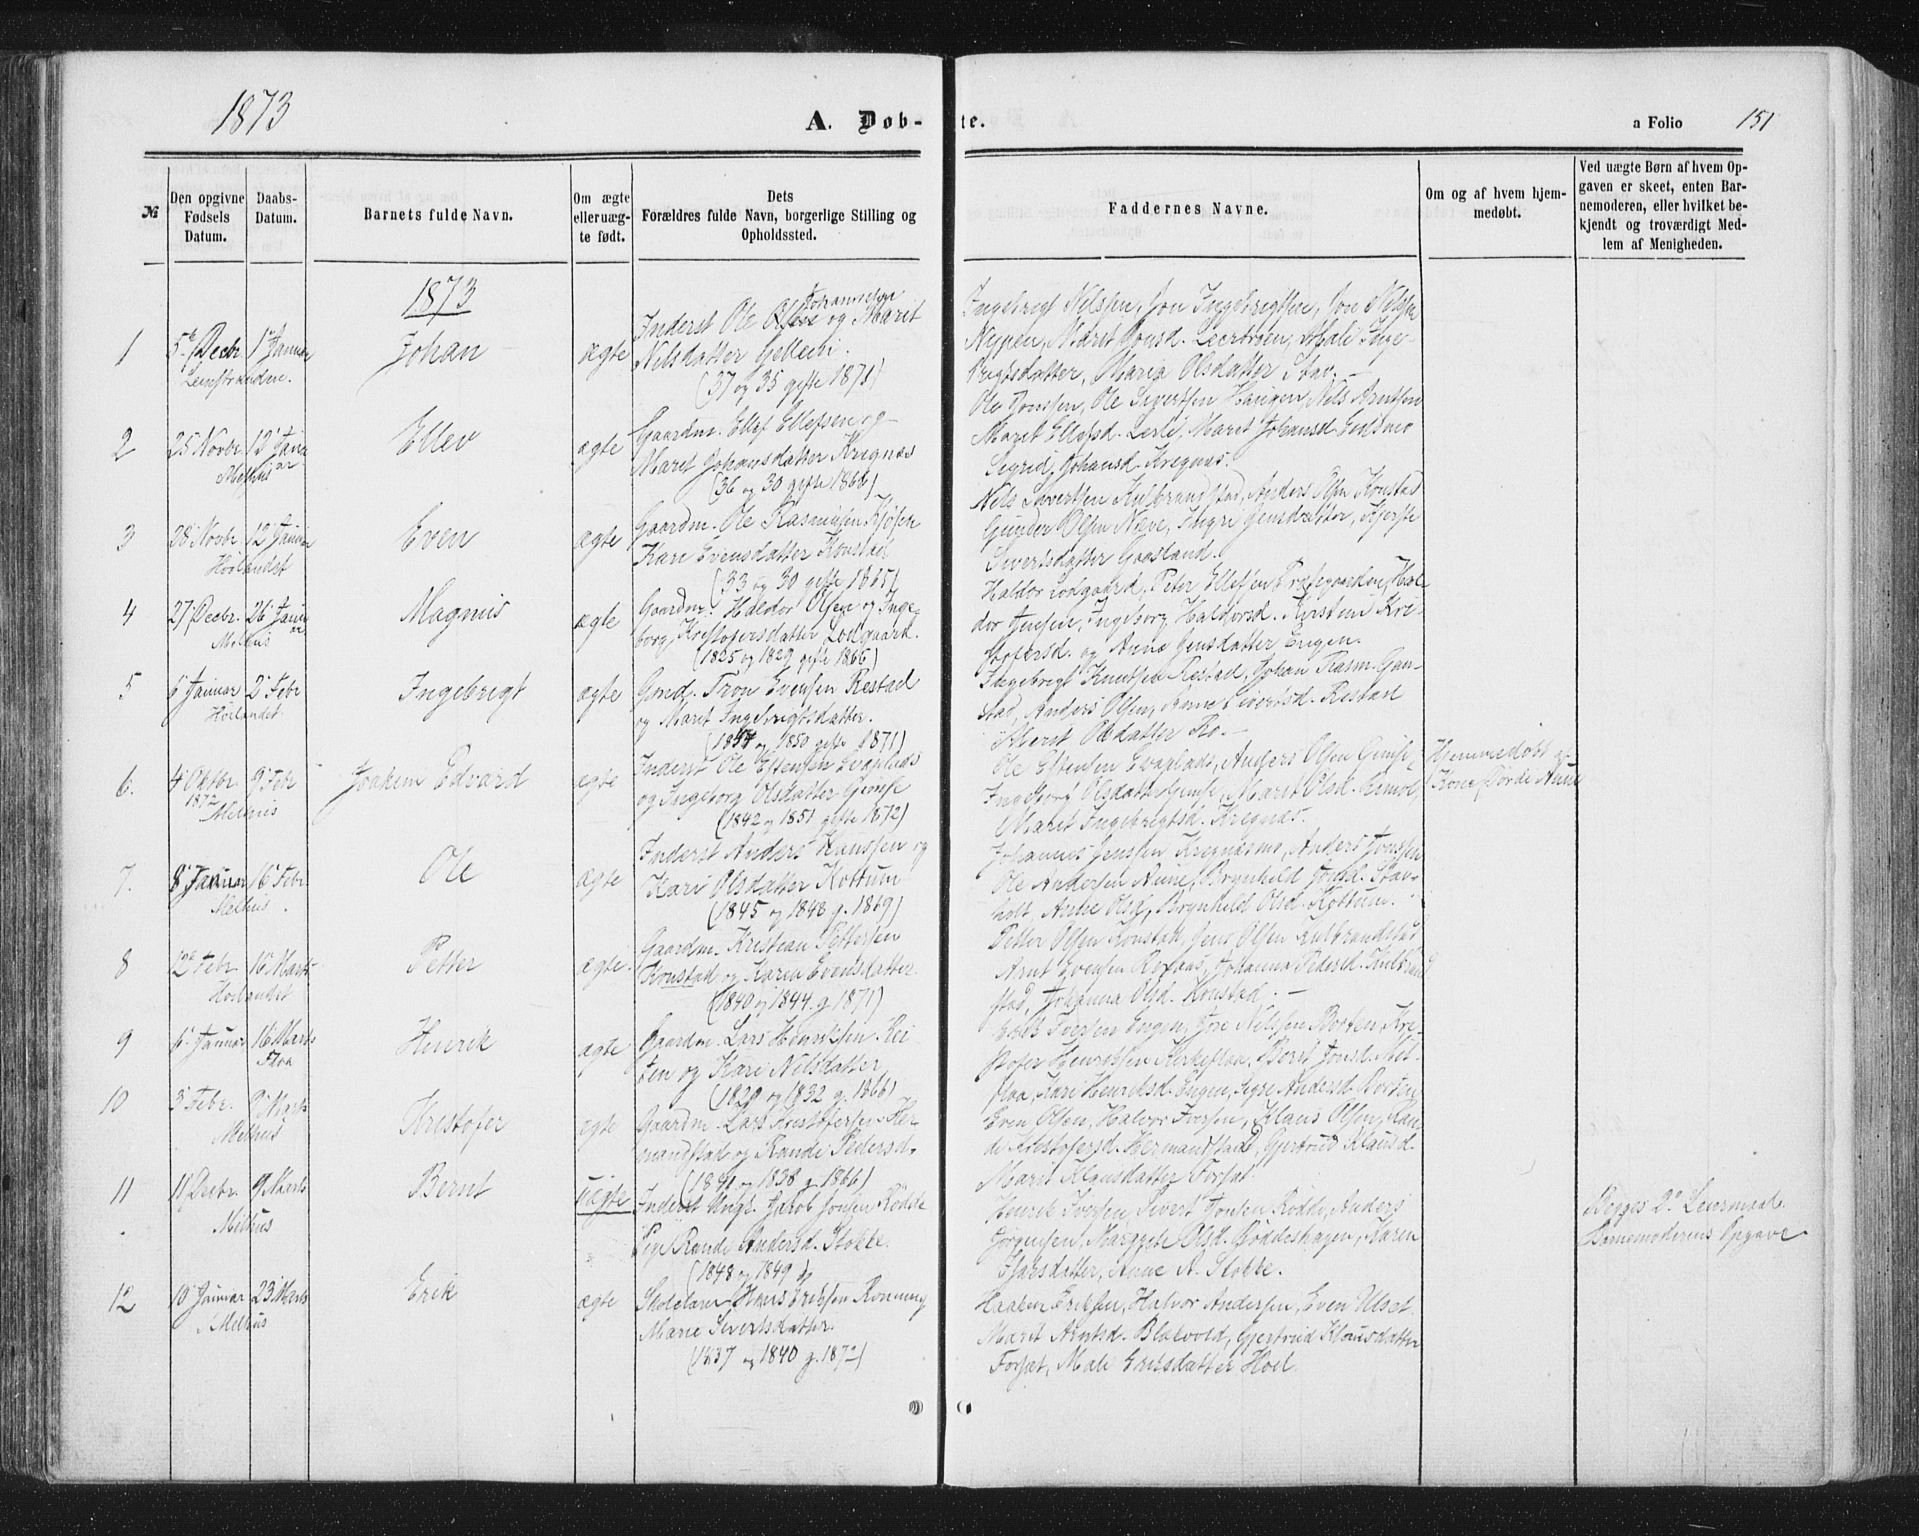 1873
A. Døb-
te.
a Folio
151
№
Den opgivne Fødsels Datum.
Daabs-Datum.
Barnets fulde Navn.
Om ægte eller uæg-te født.
Dets Forældres fulde Navn, borgerlige Stilling og Opholdssted.
Faddernes Navne.
Om og af hvem hjem-medøbt.
Ved uægte Børn af hvem Op-gaven er skeet, enten Bar-nemoderen, eller hvilket be-kjendt og troværdigt Med-lem af Menigheden.
1873
1 Decbr. Johan ægte
Inderst Ole Johannesen og Marit
Nilsdatter
(37 og 35 gifte 1871)
Ingebrigt Nilssen, Jon Ingebrigtsen, Jon Nilssen
Maria Olsdatter Stav.
2 25 Novbr. 12 Janu ar Ellev ægte
Melhus
Gaardm. Ellef Ellefsen og
Marit Johansdatter Kregnæs
(36 og 30 gifte 1866)
Ole Jonssen, Ole Sivertsen Haugen, Nils Arntsen
Marit Ellefsd. Marit Johansd.
Sigrid Johansd. Kregnæs.
3 28 Novbr. 12 Januar Even ægte
Hölandet
Gaardm. Ole Rasmussen
Kari Evensdatter Konstad
(33 og 30 gifte 1865)
Nils Sivertsen Kulbrandstad, Anders Olsen Konstad
Gunder Olsen
Sivertsdatter Gaasland.
4 27 Decbr. 26 Janu ar Magnus ægte
Melhus
Gaardm. Haldor Olsen og Inge-
borg Kristofersdatter Lodgaard.
(1825 og 1829 gifte 1866)
Haldor Lodgaard, Peter Ellefsen Præstegaarden, Hal-
dor Jensen, Ingeborg Haldorsd. Kirsten Kri-
stofersd. og Anne Jensdatter Engen.
5 6 Januar 2 Febr Ingebrigt ægte
Hölandet
Gmd. Tron Evensen Restad
og Marit Ingebrigtsdatter.
(1847 og 1850 gifte 1871)
Ingebrigt Knutsen Restad, Johan Rasm. Gau-
stad, Anders Olsen, Anne Sivertsd. Restad
Marit Olsdatter Ro.
6. 4 Oktbr. 9 Febr Joakim Edvard ægte
1872
Melhus
Inderst Ole Estensen
og Ingeborg Olsdatter Gimse
(1842 og 1851 gifte 1872)
Ole Estensen Anders Olsen Gimse,
Ingeborg Olsdatter Gimse, Marit Olsd.
Marit Ingebrigtsd. Kregnæs.
Hjemmedøbt af
Kone
7. 8 Januar 16 Febr. Ole ægte
Melhus
Inderst Anders Hanssen og
Kari Olsdatter Kottum
(1845 og 1848 g. 1869)
Johannes Jenssen Kregnæsmo, Anders Jonssen
Ole Andersen Aune, Brynhild Jonsd. Stav-
holt, Anne Olsd, Brynhild Olsd. Kottum.
8 12 Febr. 16 Marts Petter ægte.
Hölandet
Gaardm. Kristian Pettersen
Konstad og Karen Evensdatter.
(1840 og 1844 g. 1871)
Petter Olsen Konstad, Jens Olsen Kulbrandstad
Arnt Evensen Johanna Pedersd. Kulbrand
stad, Johanna Olsd. Konstad.
9 6 Januar 16 Marts Henrik ægte
Flaa
Gaardm. Lars Henriksen
ten og Kari Nilsdatter
(1829 og 1832 g. 1866)
Iversen Engen, Tore Nilssen Borten, Kri-
stofer Henriksen Kirkeflaa, Berit Jonsd.
flaa, Kari Henriksd. Engen, Andersd. Borten
10 3 Febr. 9 Marts Kristofer ægte
Melhus
Gaardm. Lars Kristofersen Her-
mandstad og Randi Pedersd.
(1841 og 1838 g. 1866)
Even Olsen, Halvor Iversen, Klaus Olsen, Ran-
di Kristofersd. Hermandstad, Gjertrud Klausd.
Marit Klausdatter Forset.
11 11 Decbr. 9 Marts Bernt uægte
Melhus
Inderst Ungk. Jakob Jonsen Rødde
Pige Randi Andersd. Stokke.
(1848 og 1849)
Henrik Iversen, Sivert Jonsen Rödde, Anders
Jørgensen, Margrete Olsd. Röddeshagen, Karen
Anne A. Stokke.
Begges 2. Leiermaal.
Barnemoderens Opgave
12 10 Januar 23 Marts Erik ægte
Melhus
Skolelærer Hans Eriksen Rønning
Marie Sivertsdatter.
(1837 og 1840 g. 1872)
Haaken Eriksen, Halvor Andersen, Even Ulset
Marit Arntsd. Blækvold, Gjertrud Klausdatter
Forset, Mali Eriksdatter Hoel